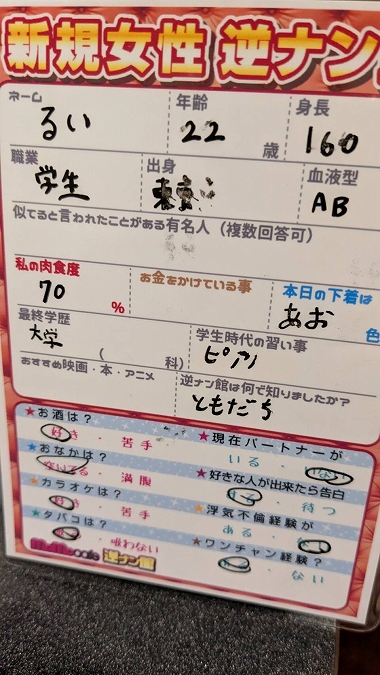 新規女性 逆ナン
ネーム 年齢 身長
るい 22 歳 160
職業 出身 血液型
学生 AB
似てると言われたことがある有名人(複数回答可)
私の肉食度 お金をかけている事 本日の下着は
70 % あお 色
最終学歴 学生時代の習い事
大学 ( 科) ピアノ
おすすめ映画・本・アニメ 逆ナン館は何で知りましたか?
ともだち
★お酒は? ★現在パートナーが
好き・苦手 いる・いない
★おなかは? ★好きな人が出来たら告白
空いてる・満腹 する・待つ
★カラオケは? ★浮気不倫経験が
好き・苦手 ある・ない
★タバコは? ★ワンチャン経験?
・吸わない ・ない
逆ナン館